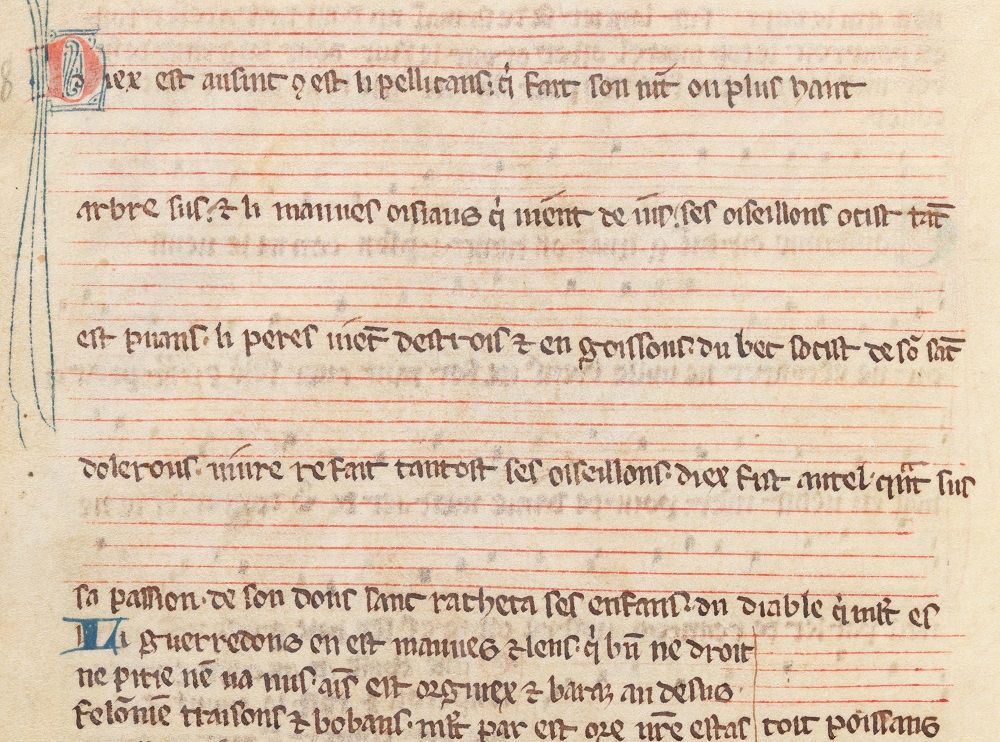 Diex est ausint ꝯ est li pellicans· q̍ fait son nit ou plus haut
arbre sus· ⁊ li mauues oisiaus q̍ uient de ius· ses oiseillons ocist tāt
est puans· li peres uiēt destrois ⁊ en goissous· du bec socist de sō sāc
dolerous· uiure refait tantost ses oiseillons· diex fist autel· qn̄t sus
sa passion· de son douz sanc racheta ses enfans· du diable q̍ est
Li guerredons en est mauues ⁊ lens· q̍ bn̄ ne droit
ne pitie nē ua nus· ais̄ est orguiex ⁊ baraz au desus
felōnie traisons ⁊ bobans· par est ore ur̄e estas toit poissans